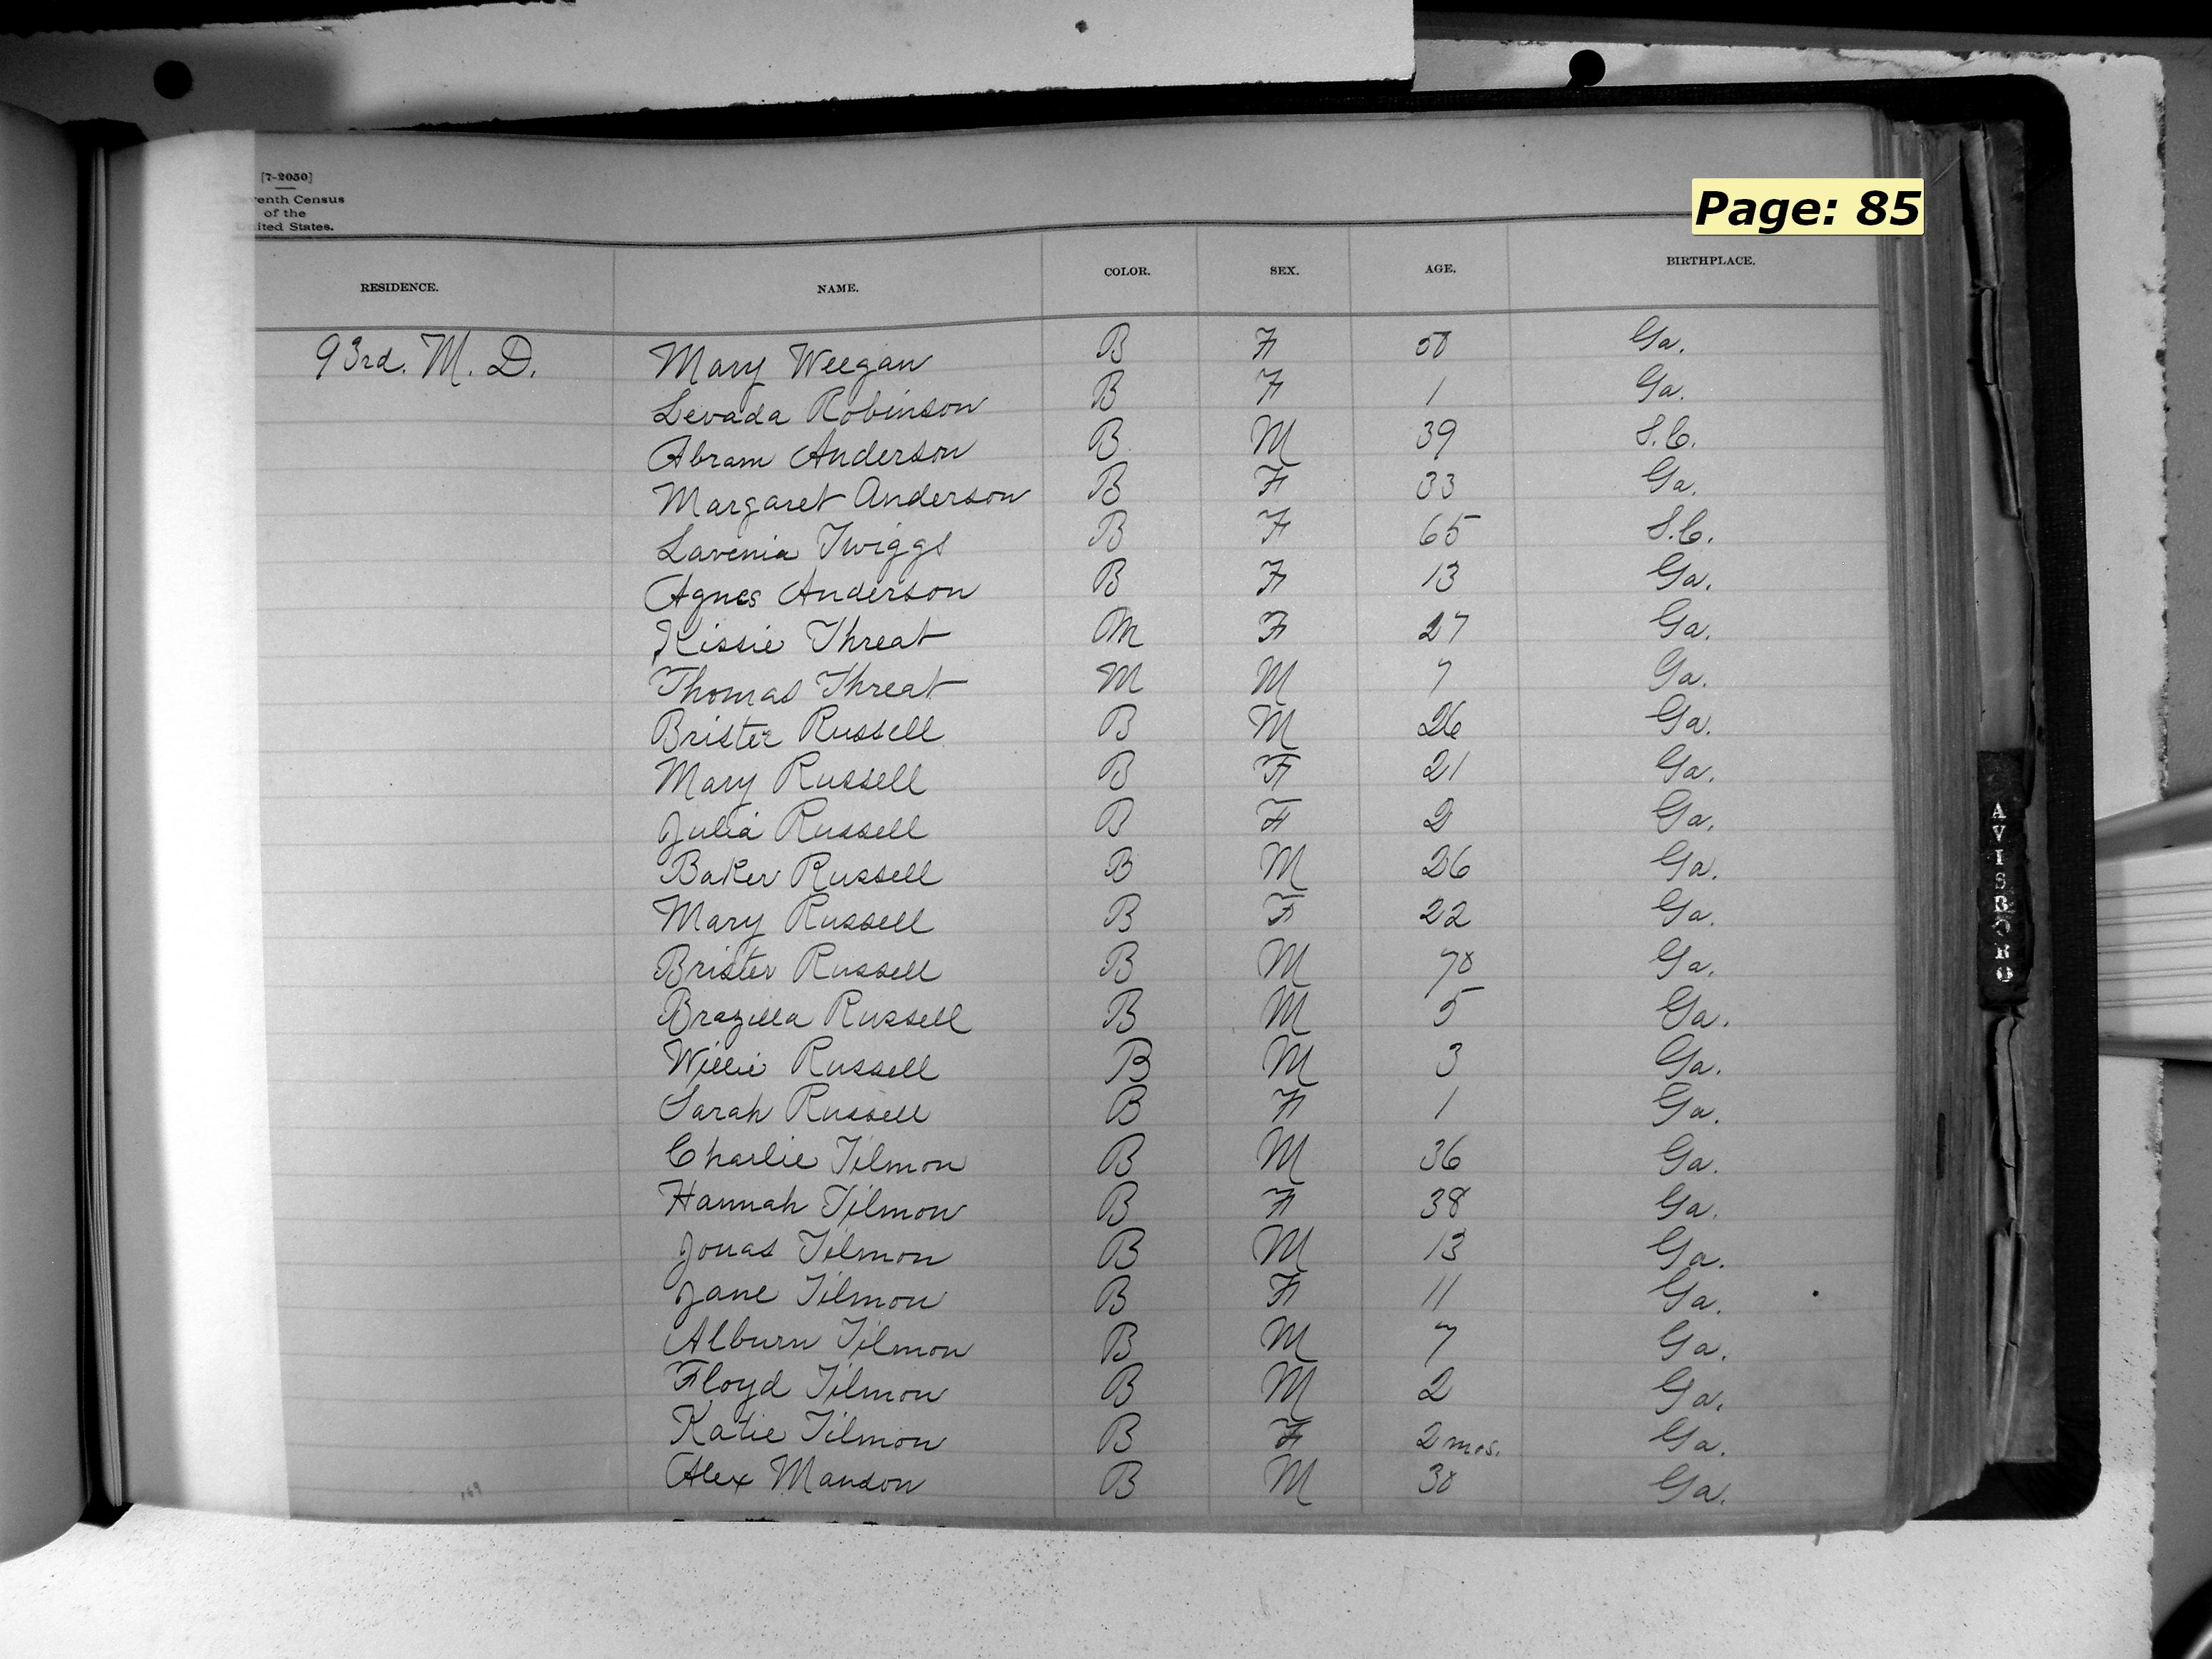 [7-2050]
Eleventh Census
of the
United States.
Page: 85
RESIDENCE. NAME. COLOR. SEX. AGE. BIRTHPLACE.
93rd. M. D. Mary Weegan B F 50 Ga.
Levada Robinson B F 1 Ga.
Abram Anderson B M 39 S.C.
Margaret Anderson B F 33 Ga.
Lavenia Twiggs B F 65 S.C.
Agnes Anderson B F 13 Ga.
Kissie Threat M F 27 Ga.
Thomas Threat M M 7 Ga.
Brister Russell B M 26 Ga.
Mary Russell B F 21 Ga.
Julia Russell B F 2 Ga.
Baker Russell B M 26 Ga.
Mary Russell B F 22 Ga.
Brister Russell B M 70 Ga.
Brazilla Russell B M 5 Ga.
Willie Russell B M 3 Ga.
Sarah Russell B F 1 Ga.
Charlie Tilmon B M 36 Ga.
Hannah Tilmon B F 38 Ga.
Jonas Tilmon B M 13 Ga.
Jane Tilmon B F 11 Ga.
Alburn Tilmon B M 7 Ga.
Floyd Tilmon B M 2 Ga.
Katie Tilmon B F 2 mos. Ga.
Alex Manson B M 30 Ga.
169